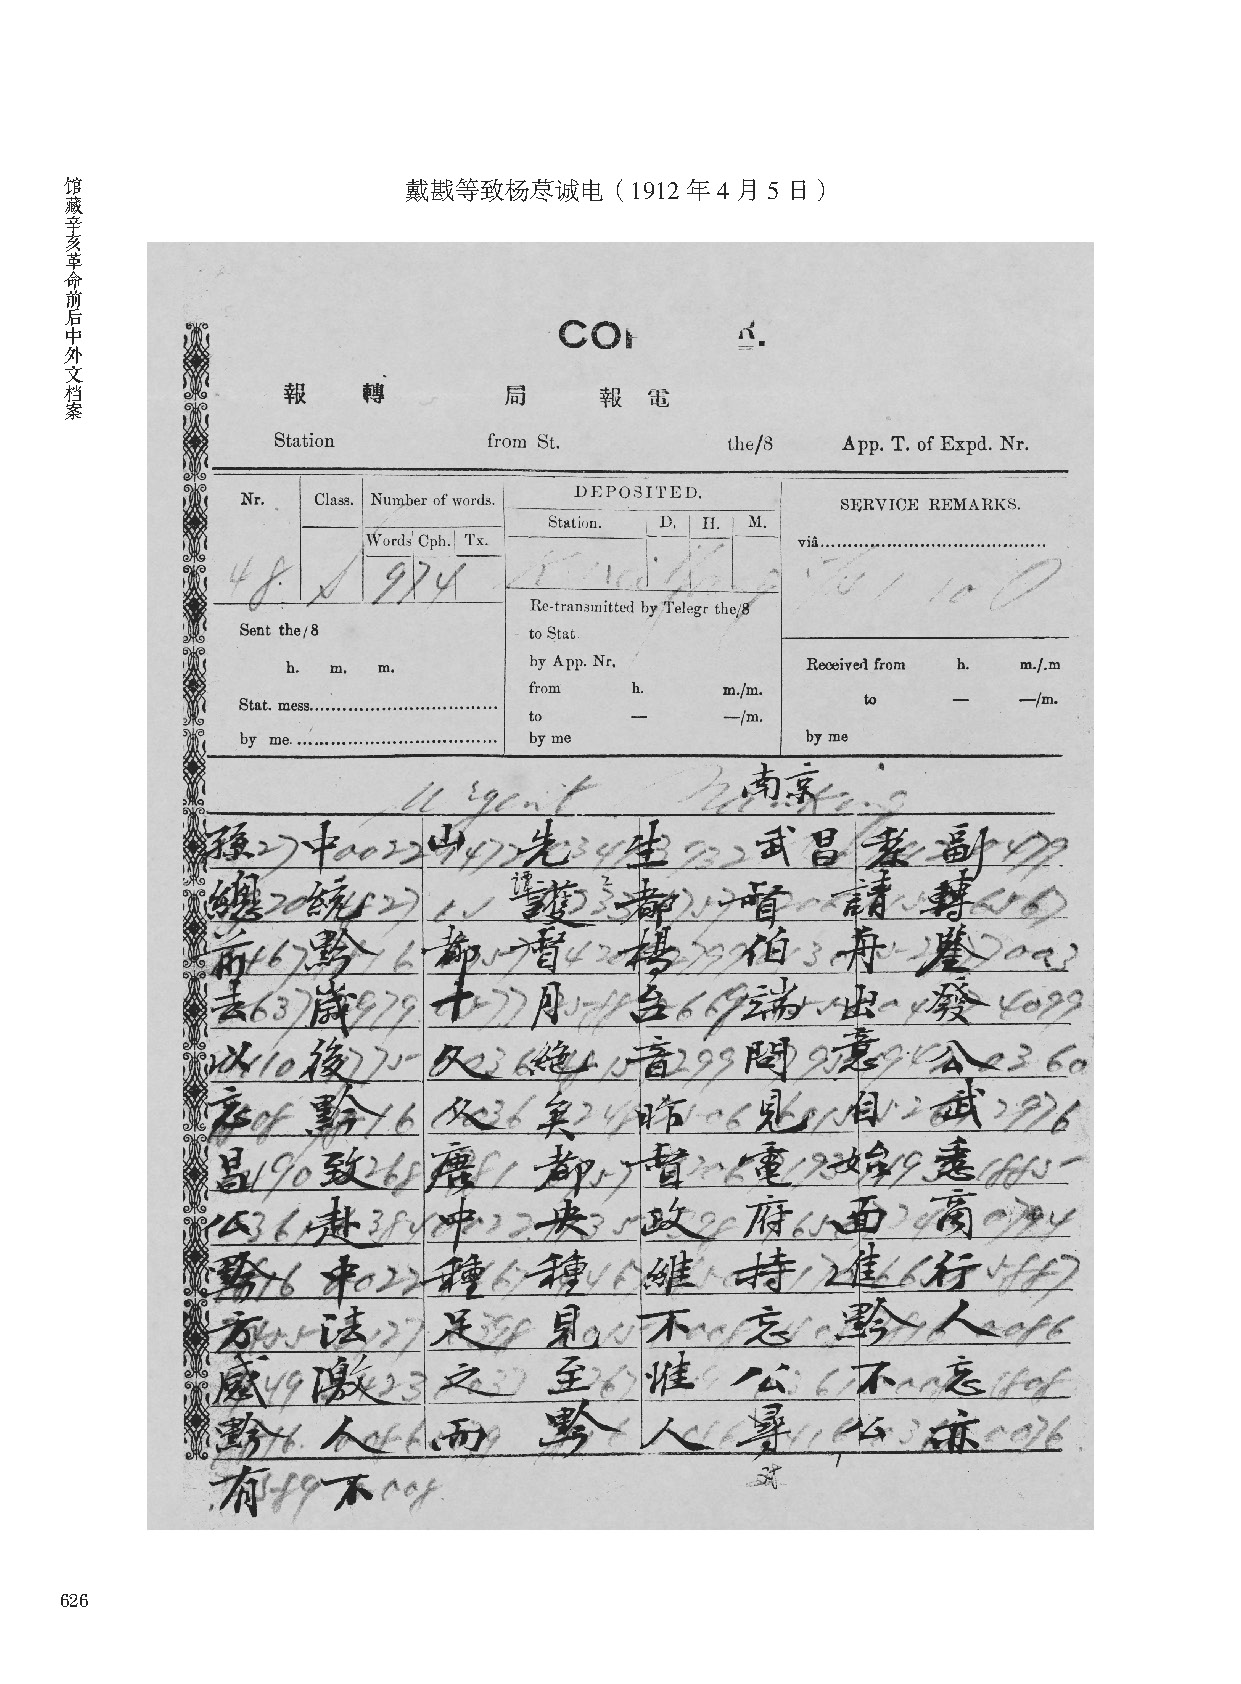 馆藏辛亥革命前后中外文档案
戴戡等致杨荩诚电（1912年4月5日）
報 轉 局 報 電
Station from St. the/8 App. T. of Expd. Nr.
Nr. Class. Number of words. DEPOSITED. SERVICE REMARKS.
Station. D. H. M.
Words Cph. Tx. viâ
48. S 974
Re-transmitted by Telegr the/8
Sent the/8 to Stat.
h. m. m. by App. Nr. Received from h. m./.m
from h. m./m. to — —/m.
Stat. mess.
to — —/m.
by me. by me by me
urgent Nanking 南京
孫中山先生武昌黎副
總統譚護都督請轉
前黔都督楊伯舟鑒
去歲十月台端出發
以後久絕音問意公
忘黔久矣昨見自武
昌致唐都督電始悉
公赴中央政府面商
黔中種種維持進行
方法足見不忘黔人
感激之至惟公不忘
黔人而黔人尋公亦
有不
626